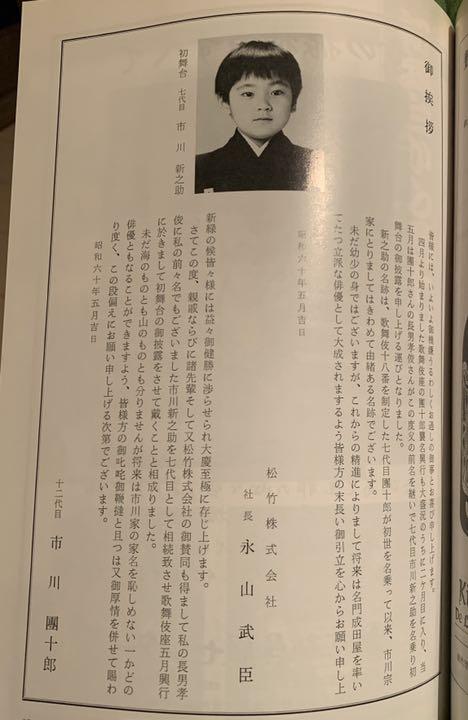 御挨拶
皆様には、いよいよ御機嫌うるわしくお過しの御事とお喜び申し上げます。
四月より始まりました歌舞伎座の團十郎襲名興行も大盛況のうちに二ヶ月目に入り、当
五月は團十郎さんの長男孝俊さんがこの度父の前名を継いで七代目市川新之助を名乗り初
舞台の御披露を申し上げる運びとなりました。
新之助の名跡は、歌舞伎十八番を制定した七代目團十郎が初世を名乗って以来、市川宗
家にとりましてはきわめて由緒ある名跡でございます。
未だ幼少の身ではございますが、これからの精進によりまして将来は名門成田屋を率い
てたつ立派な俳優として大成されますよう皆様方の末長い御引立を心からお願い申し上
昭和六十年五月吉日
松竹株式会社
社長 永山武臣
初舞台 七代目 市川新之助
新緑の候皆々様には益々御健勝に渉らせられ大慶至極に存じ上げます。
さてこの度、親戚ならびに諸先輩そして又松竹株式会社の御賛同も得まして私の長男孝
俊に私の前々名でもございました市川新之助を七代目として相続致させ歌舞伎座五月興行
に於きまして初舞台の御披露をさせて戴くことと相成りました。
未だ海のものとも山のものとも分りませんが将来は市川家の家名を恥しめない一かどの
俳優ともなることができますよう、皆様方の御叱咤御鞭撻と且つは又御厚情を併せて賜わ
り度く、この段偏えにお願い申し上げる次第でございます。
昭和六十年五月吉日
十二代目 市川團十郎